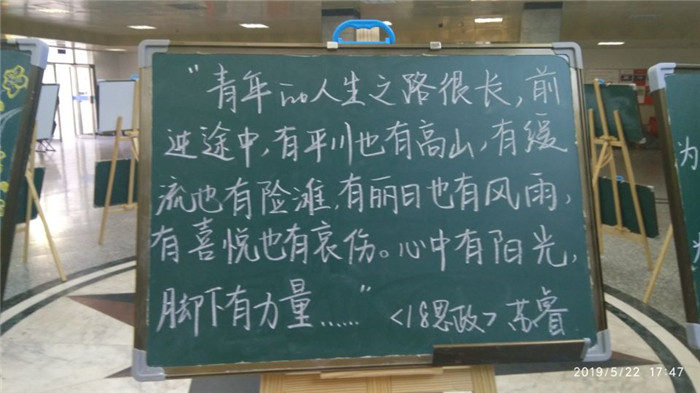 "青年的人生之路很长,前
进途中,有平川也有高山,有缓
流也有险滩,有丽日也有风雨,
有喜悦也有哀伤。心中有阳光,
脚下有力量……"
<18思政>苏睿
2019/5/22 17:47